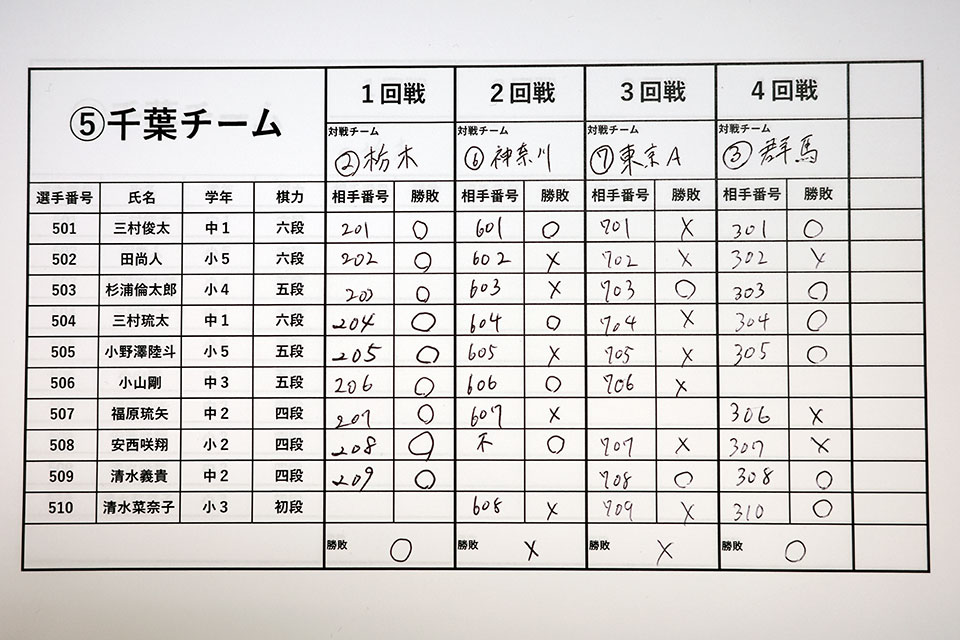 ⑤千葉チーム 1回戦 2回戦 3回戦 4回戦
対戦チーム 対戦チーム 対戦チーム 対戦チーム
②栃木 ⑥神奈川 ⑦東京A ③群馬
選手番号 氏名 学年 棋力 相手番号 勝敗 相手番号 勝敗 相手番号 勝敗 相手番号 勝敗
501 三村俊太 中1 六段 201 ○ 601 ○ 701 × 301 ○
502 田尚人 小5 六段 202 ○ 602 × 702 × 302 ×
503 杉浦倫太郎 小4 五段 203 ○ 603 × 703 ○ 303 ○
504 三村琉太 中1 六段 204 ○ 604 ○ 704 × 304 ○
505 小野澤陸斗 小5 五段 205 ○ 605 × 705 × 305 ○
506 小山剛 中3 五段 206 ○ 606 ○ 706 ×
507 福原琉矢 中2 四段 207 ○ 607 × 306 ×
508 安西咲翔 小2 四段 208 ○ 不 ○ 707 × 307 ×
509 清水義貴 中2 四段 209 ○ 708 ○ 308 ○
510 清水菜奈子 小3 初段 608 × 709 × 310 ○
勝敗 ○ 勝敗 × 勝敗 × 勝敗 ○